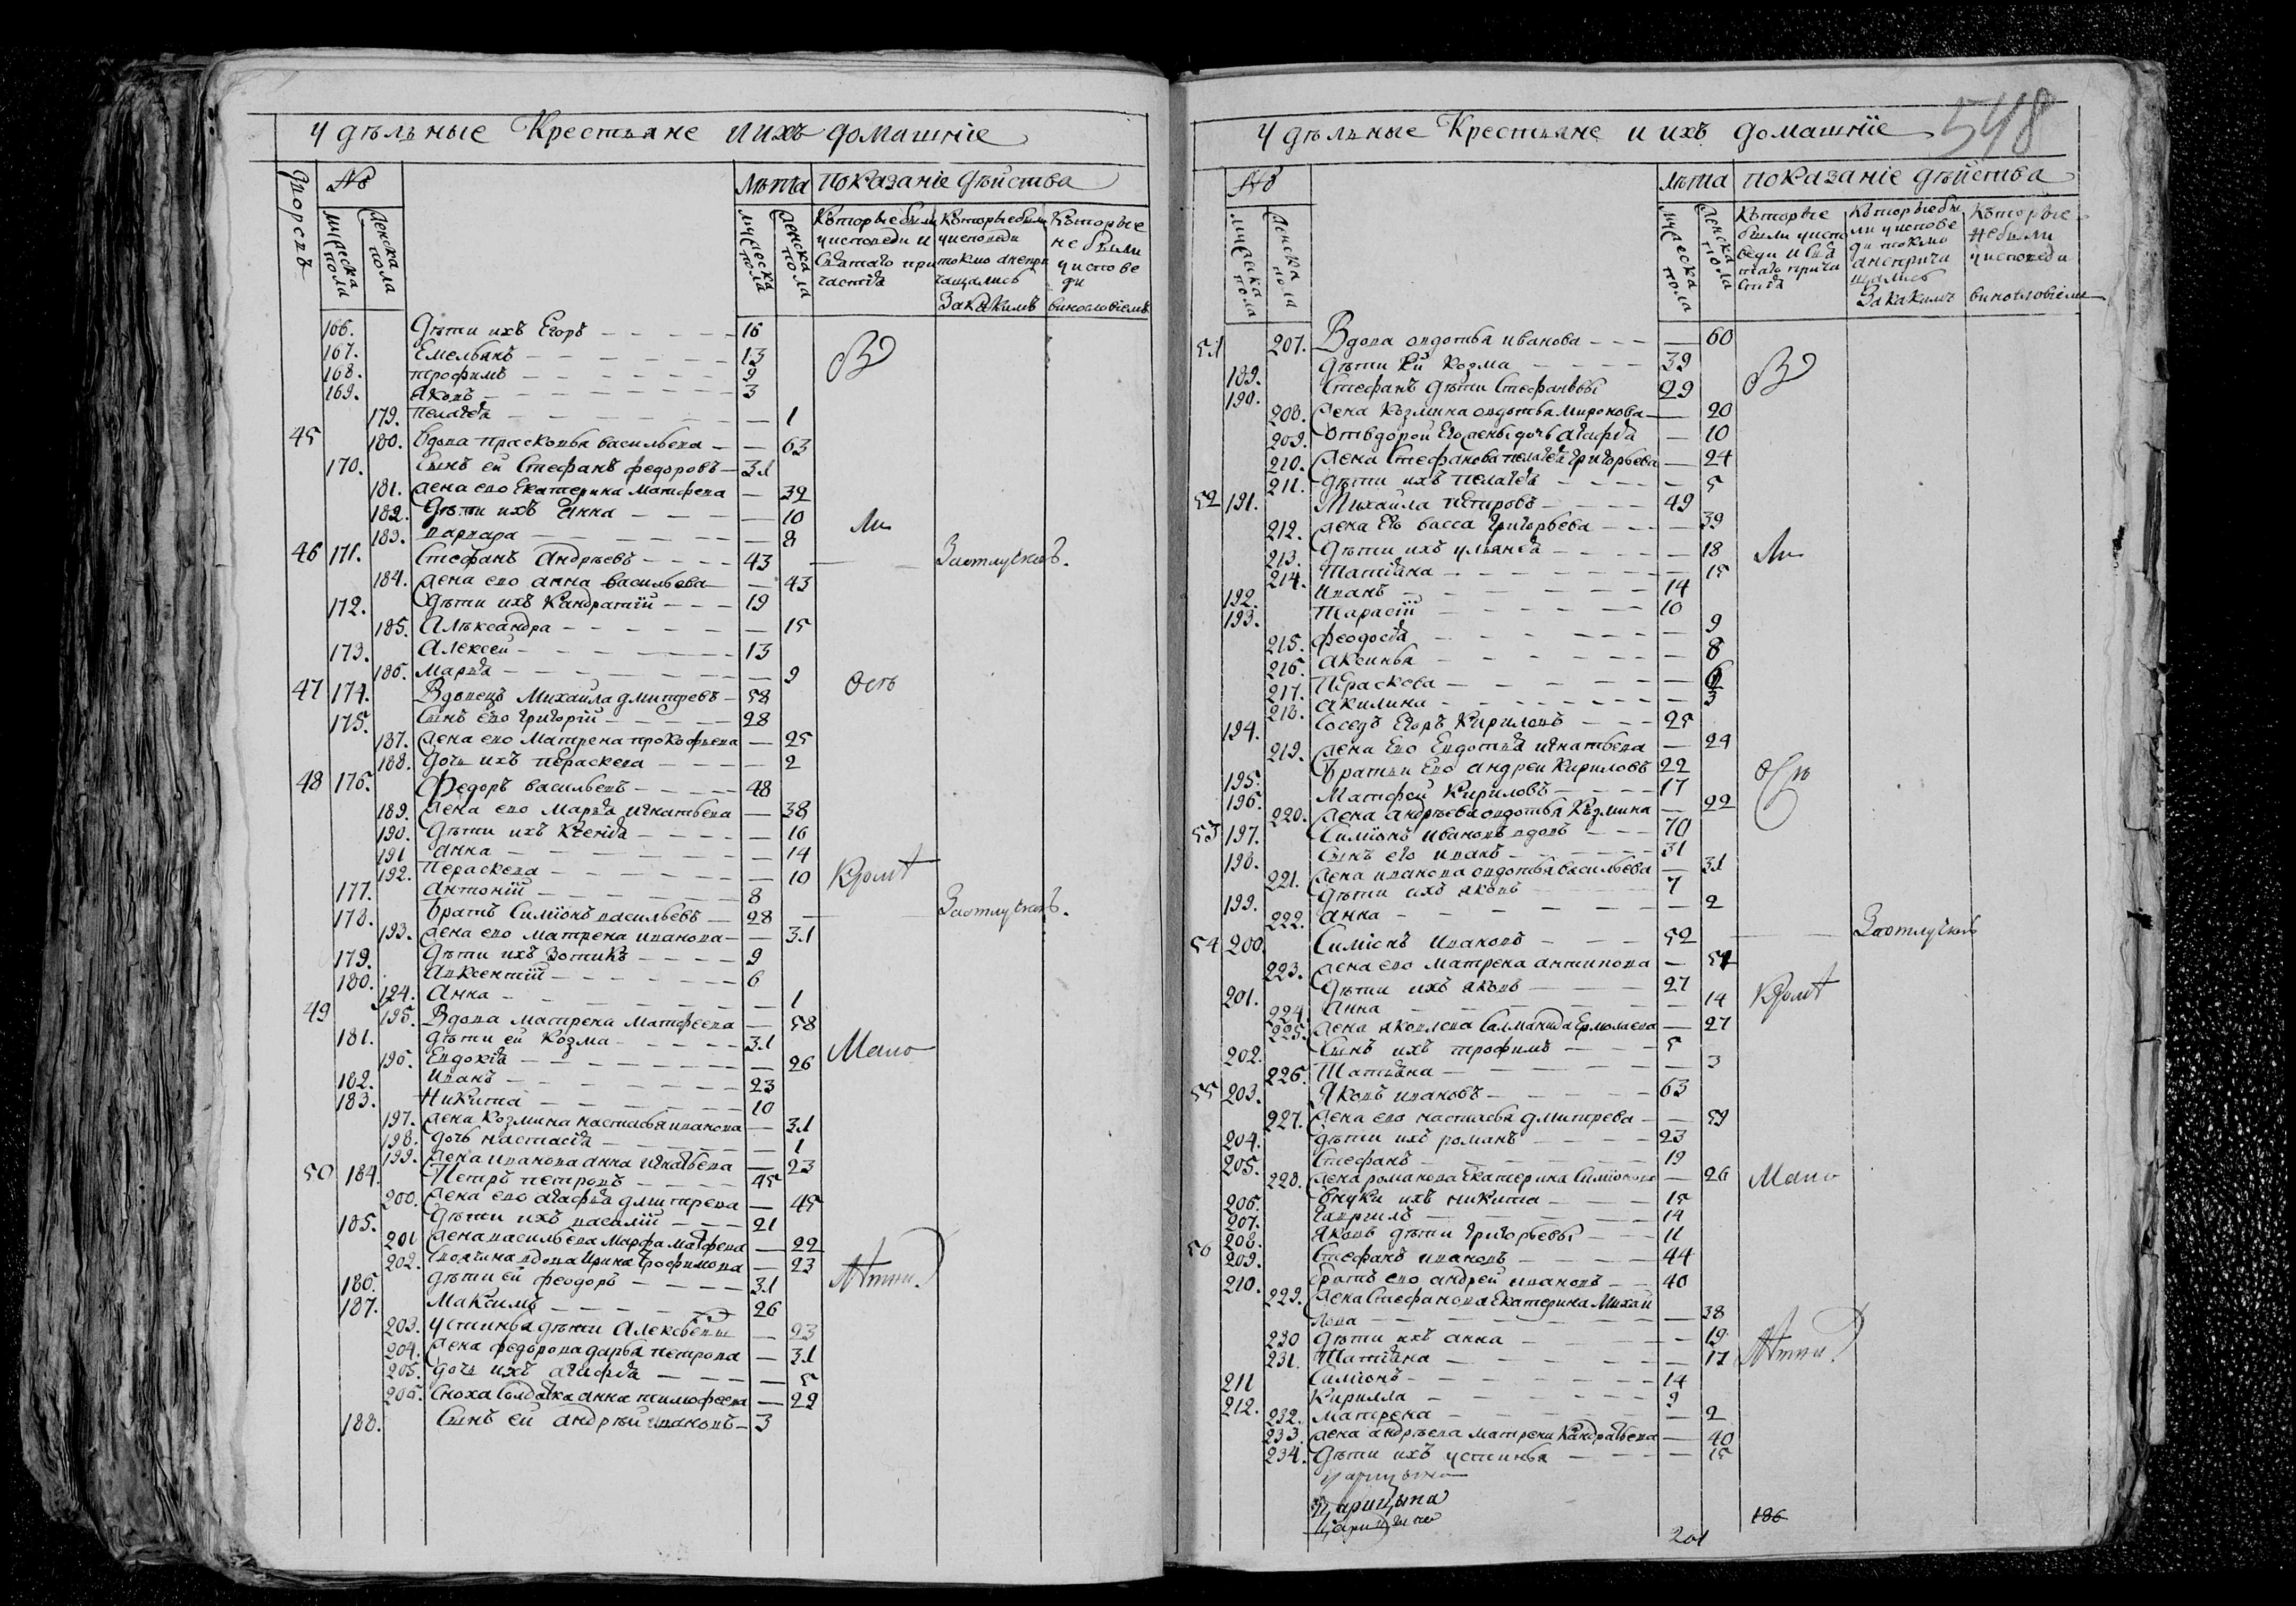 удѣльные Крестьяне и ихъ домашнiе
№
лѣта показанiе дѣйства
дворовъ
мужеска пола
женска пола
мужеска пола
женска пола
Которые были у исповеди и святаго причастiя
Которые были у исповеди токмо а не причащались За какимъ
Которые не были у исповеди винословiемъ
166. Дѣти ихъ Егоръ 16
167. Емельянъ 13
168. трофимъ 9
169. яковъ 3
179. пелагея 1
45 180. вдова прасковья васильева 63
170. Сынъ ей Стефанъ федоровъ 31
181. жена ево Екатерина Матфева 32
182. Дѣти ихъ Анна 10
183. варвара 8
46 171. Стефанъ Андрѣевъ 43 За отлучкою.
184. жена ево анна васильева 43
172. дѣти ихъ Кандратiй 19
185. Алѣксандра 15
173. Алексей 13
186. Марья 9
47 174. Вдовецъ Михаила дмитревъ 58
175. Сынъ ево григорiй 28
187. жена ево Матрена прокофьева 25
188. дочь ихъ параскева 2
48 176. Федоръ васильевъ 48
189. жена ево Марья игнатьева 38
190. дѣти ихъ Ксенiя 16
191 анна 14
192. Параскева 10
177. антонiй 8
178. братъ Симiонъ васильевъ 28 За отлучкою.
193. жена ево матрена иванова 31
179. дѣти ихъ Зотикъ 9
180. авксентiй 6
194. анна 1
49 195. Вдова матрена матфеева 58
181. дѣти ей Козма 31
196. Евдокiя 26
182. иванъ 23
183. Никита 10
197. жена Козмина настасья иванова 31
198. дочь настасiя 1
199. жена иванова анна игнатьева 23
50 184. Петръ петровъ 45
200. жена ево агафья дмитрева 45
185. дѣти ихъ васалiй 21
201 жена васильева Марфа матфева 22
202. своячина вдова ирина трофимова 23
186. дѣти ей феодоръ 31
187. Максимъ 26
203. устинья дѣти Алексѣевы 23
204. жена федорова дарья петрова 31
205. дочь ихъ агафья 5
206. Сноха Солдатка анна тимофеева 29
188. Сынъ ей андрѣй ивановъ 3
548
удѣльные Крестьяне и ихъ домашнiе
№
лѣта показанiе дѣйства
мужеска пола
женска пола
мужеска пола
женска пола
Которые были у исповеди и святаго причастiя
Которые были у исповеди токмо а не причащались За какимъ
Которые не были у исповеди винословiемъ
51 207. Вдова авдотья иванова 60
189. дѣти ей Козма 39
190. Стефанъ дѣти Стефановы 29
208. жена Козмина авдотья миронова 20
209. от второй его жены дочь агафья 10
210. жена Стефанова пелагея григорьева 24
211. дѣти ихъ пелагея 5
52 191. Михаила петровъ 49
212. жена его васса григорьева 39
213. дѣти ихъ ульяна 18
214. татiяна 15
192. иванъ 14
193. тарасiй 10
215. феодосiя 9
216. аксинья 8
217. Параскева
218. акилина 3
194. Соседъ Егоръ Кириловъ 25
219. жена ево Евдотья игнатьева 24
195. братьи ево андрей Кириловъ 22
196. Матфей Кириловъ 17
220. жена андрѣева авдотья Козмина 22
53 197. Симiонъ ивановъ вдовъ 70
198. Сынъ его иванъ 31
221. жена иванова авдотья васильева 31
199. дѣти ихъ яковъ 7
222. анна 2
54 200. Симiонъ ивановъ 52 За отлучкою
223. жена ево матрена антипова 51
201. дѣти ихъ яковъ 27
224. анна 14
225. жена яковлева Саламанида Ермолаева 27
202. Сынъ ихъ трофимъ 5
226. татьяна 3
55 203. Яковъ ивановъ 63
227. жена ево настасья дмитрева 59
204. дѣти ихъ романъ 23
205. Стефанъ 19
228. жена романова Екатерина Симiонова 26
206. внуки ихъ никита 15
207. Гаврилъ 14
208. Яковъ дѣти григорьевы 11
56 209. Стефанъ ивановъ 44
210. братъ ево андрей ивановъ 40
229. жена Стефанова Екатерина Михайлова 38
230 дѣти ихъ анна 19
231. татiяна 17
211 Симiонъ 14
212. Кирилла 9
232. матрена 2
233. жена андрѣева матрена Кандратьева 40
234. дѣти ихъ устинья 15
царицына
186
201